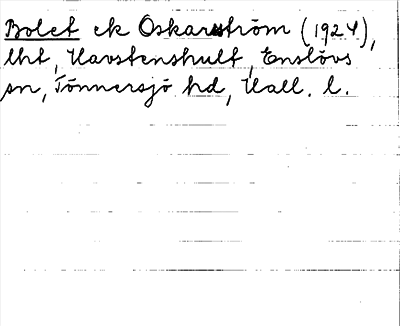 Bolet ek Oskarström (1924),
lht, Havstenshult, Enslövs
sn, Tönnersjö hd, Hall. l.